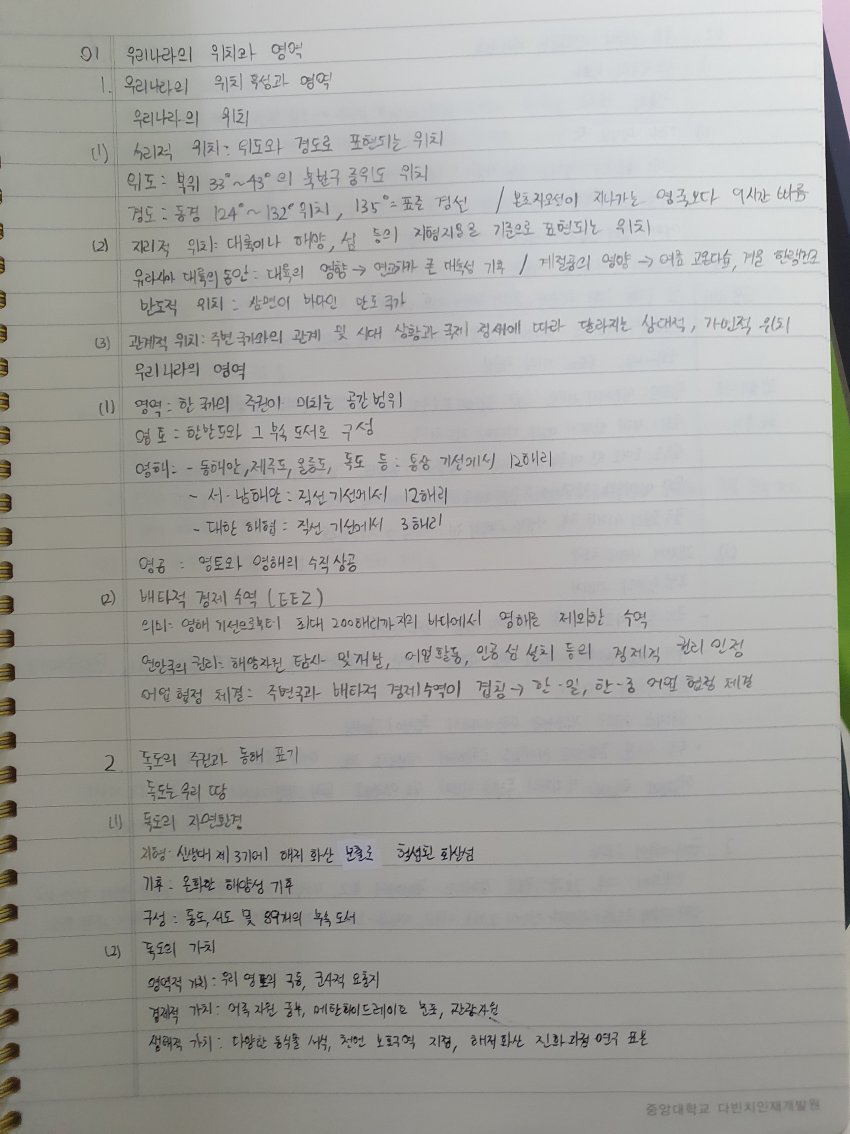 01 우리나라의 위치와 영역
1. 우리나라의 위치 특성과 영역
우리나라의 위치
(1) 수리적 위치: 위도와 경도로 표현되는 위치
위도: 북위 33°~43°의 북반구 중위도 위치
경도: 동경 124°~132° 위치, 135°= 표준 경선 / 본초자오선이 지나가는 영국보다 9시간 빠름
(2) 지리적 위치: 대륙이나 해양, 섬 등의 지형지물을 기준으로 표현되는 위치
유라시아 대륙의 동안: 대륙의 영향 → 연교차가 큰 대륙성 기후 / 계절풍의 영향 → 여름 고온다습, 겨울 한랭건조
반도적 위치: 삼면이 바다인 반도 국가
(3) 관계적 위치: 주변 국가와의 관계 및 시대 상황과 국제 정세에 따라 달라지는 상대적, 가변적 위치
우리나라의 영역
(1) 영역: 한 국가의 주권이 미치는 공간 범위
영토: 한반도와 그 부속 도서로 구성
영해: - 동해안, 제주도, 울릉도, 독도 등: 통상 기선에서 12해리
- 서·남해안: 직선 기선에서 12해리
- 대한 해협: 직선 기선에서 3해리
영공: 영토와 영해의 수직 상공
(2) 배타적 경제 수역 (EEZ)
의미: 영해 기선으로부터 최대 200해리까지의 바다에서 영해를 제외한 수역
연안국의 권리: 해양자원 탐사 및 개발, 어업 활동, 인공 섬 설치 등의 경제적 권리 인정
어업 협정 체결: 주변국과 배타적 경제 수역이 겹침 → 한·일, 한·중 어업 협정 체결
2. 독도의 주권과 동해 표기
독도는 우리 땅
(1) 독도의 자연환경
지형: 신생대 제 3기에 해저 화산 분출로 형성된 화산섬
기후: 온화한 해양성 기후
구성: 동도, 서도 및 89개의 부속 도서
(2) 독도의 가치
영역적 가치: 우리 영토의 극동, 군사적 요충지
경제적 가치: 어족 자원 풍부, 메탄하이드레이트 분포, 관광자원
생태적 가치: 다양한 동식물 서식, 천연 보호구역 지정, 해저화산 진화 과정 연구 표본
중앙대학교 다빈치인재개발원